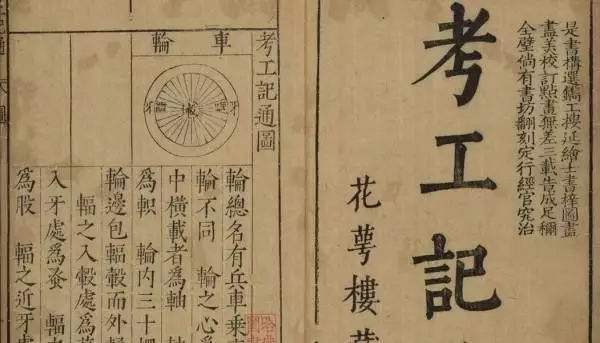 是書構選鐫工搜延繪士書梓圖畫
盡美校訂點畫無差三載告成足稱
全璧倘有書坊翻刻定行經官究治
考工記
花萼樓
考工記通圖
車輪
牙
牙
輪總名有兵車乘
輪不同 輪之心爲
中橫載者爲軸
爲軹 輪内三十
輪邊包輻轂而外
輻之入轂處爲
入牙處爲蚤 輻
爲股 輻之近牙